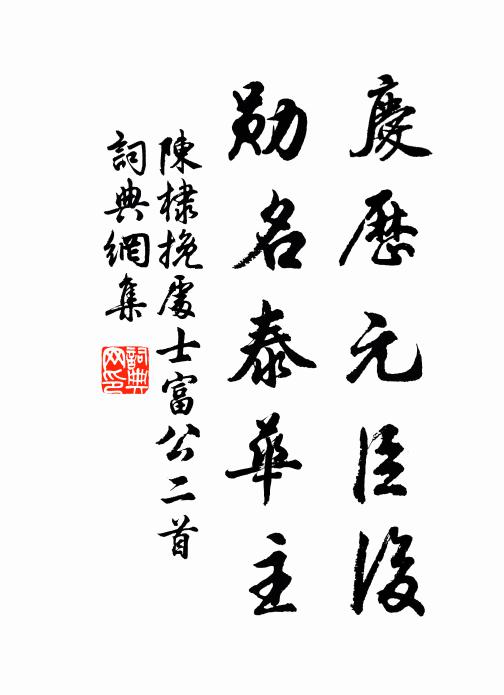 慶曆元臣後
勛名泰華主
陳棣挽處士富公二首
詞典網集
詞典网印